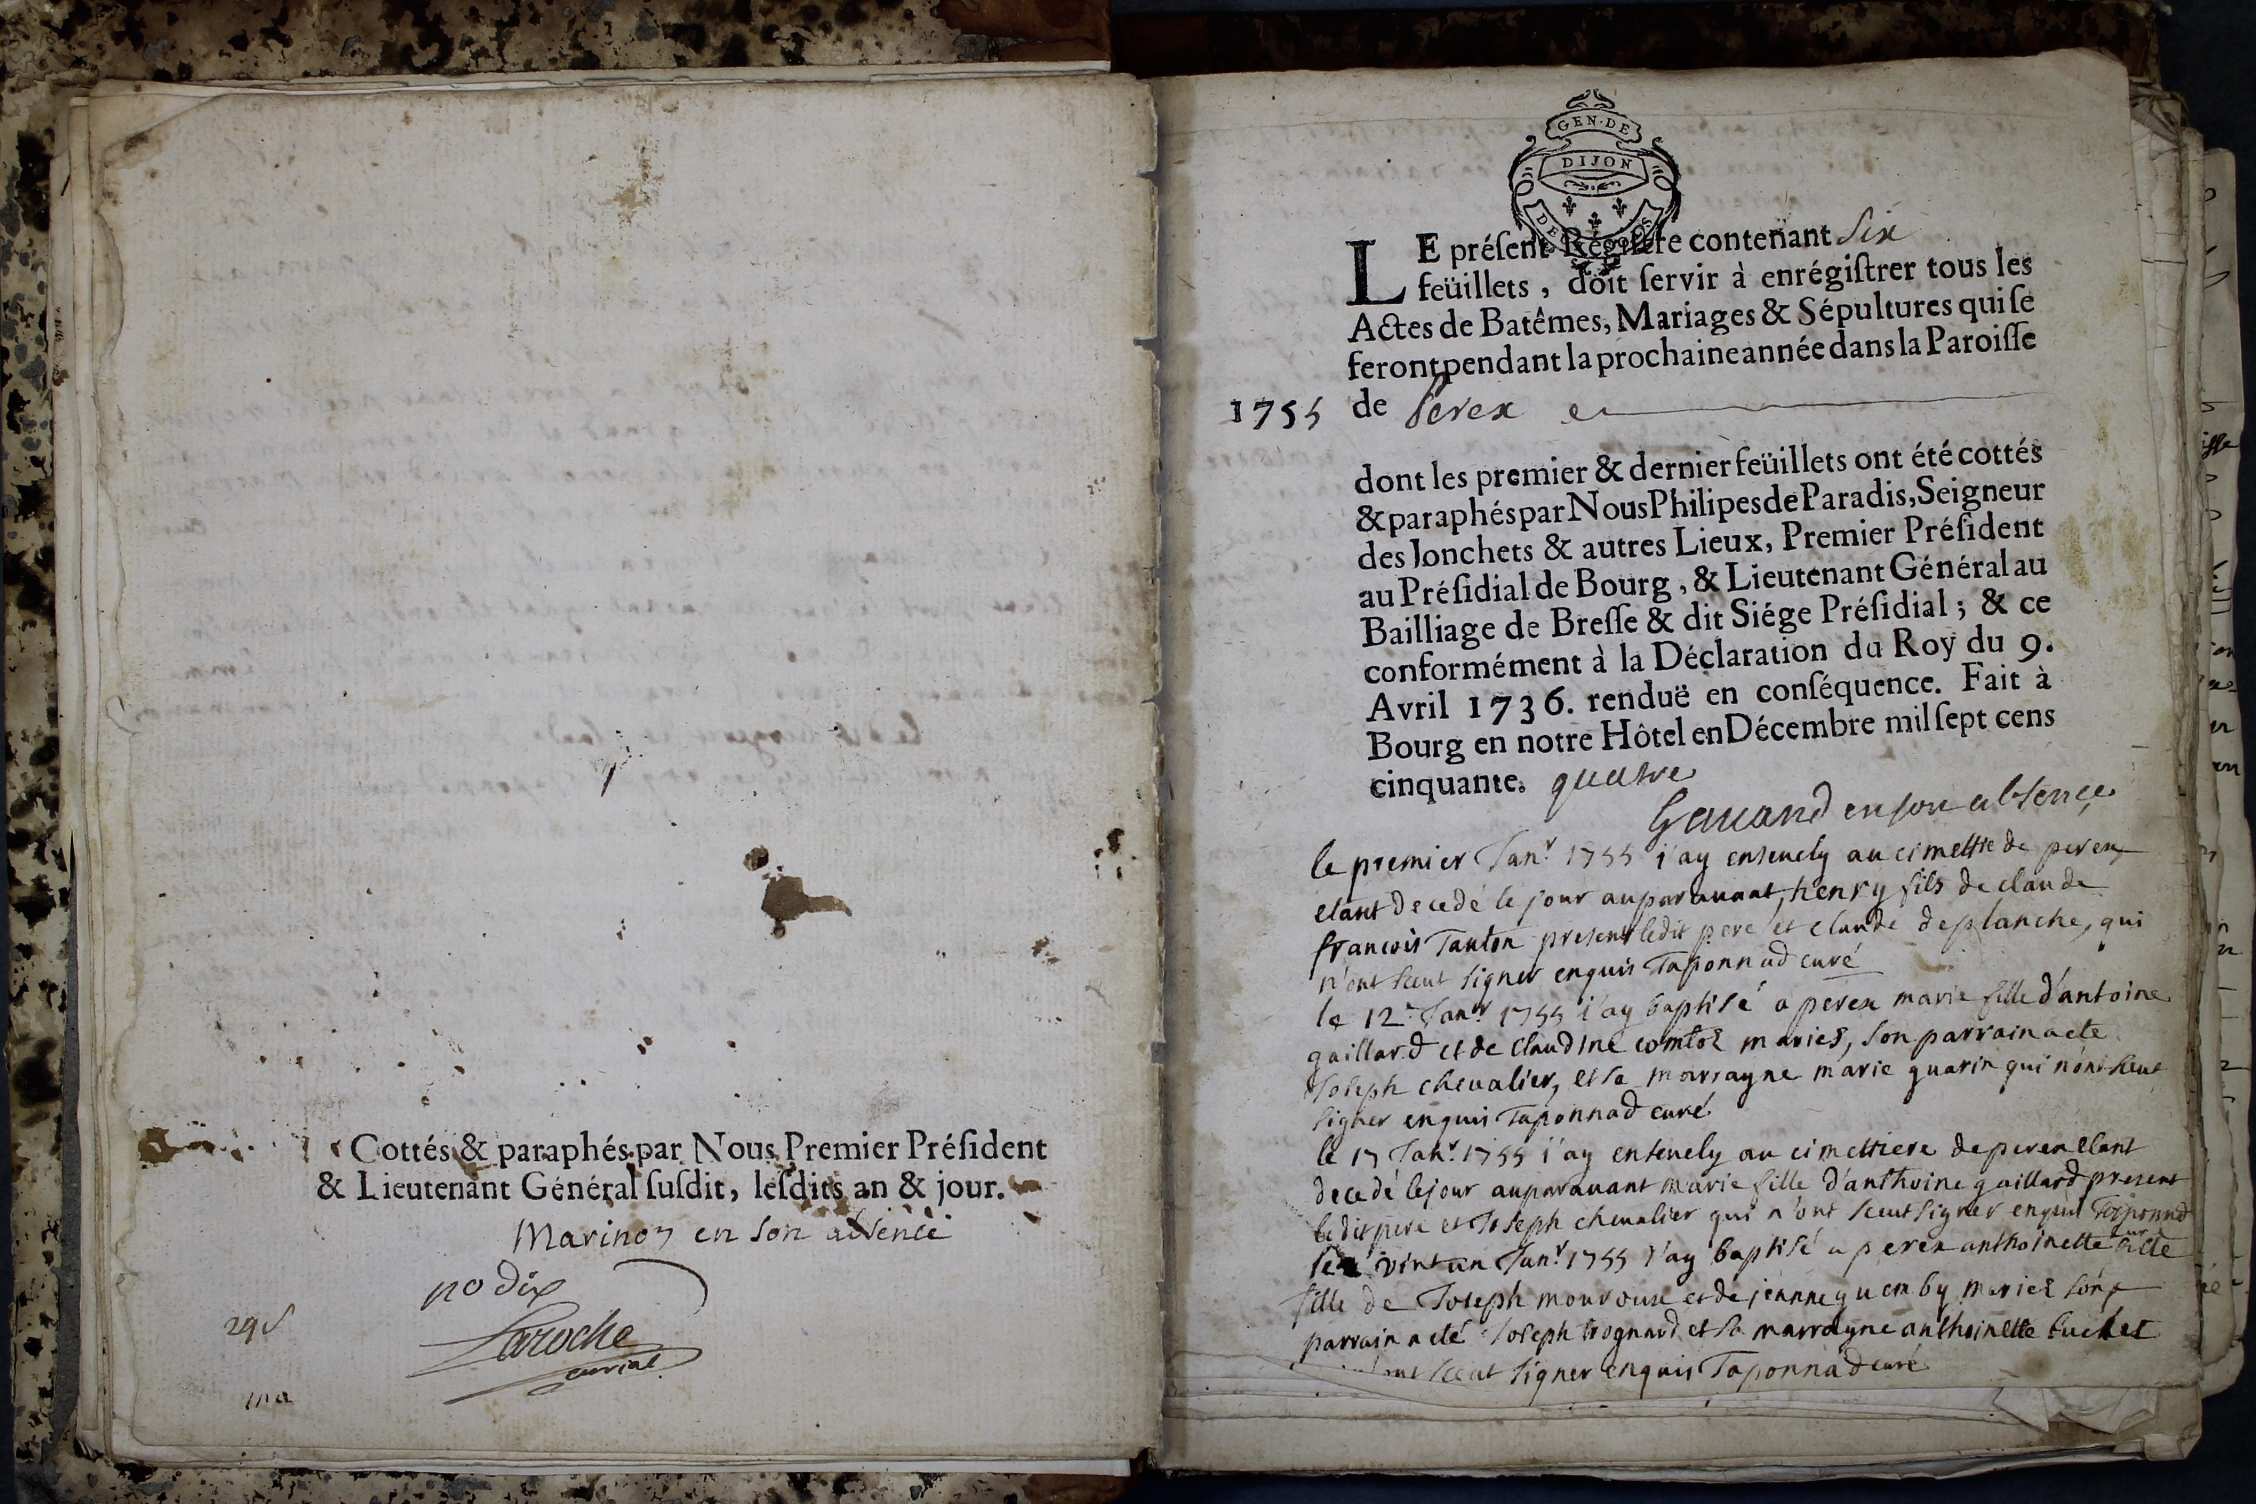 Cottés & paraphés par Nous Premier Préſident
& Lieutenant Général ſuſdit, leſdits an & jour.
Marinon en son absence
no dix
Laroche
curial
GEN·DE
DIJON
LE préſent Régiſtre contenant Six
feüillets, doit ſervir à enrégiſtrer tous les
Actes de Batêmes, Mariages & Sépultures qui ſe
feront pendant la prochaine année dans la Paroiſſe
1755 de Perex
dont les premier & dernier feüillets ont été cottés
& paraphés par Nous Philipes de Paradis, Seigneur
des Jonchets & autres Lieux, Premier Préſident
au Préſidial de Bourg, & Lieutenant Général au
Bailliage de Breſſe & dit Siége Préſidial; & ce
conformément à la Déclaration du Roy du 9.
Avril 1736. renduë en conſéquence. Fait à
Bourg en notre Hôtel en Décembre mil ſept cens
cinquante. quatre
Gauand en son absence
le premier Janr. 1755 j'ay enseuely au cimettre de perex
etant decedé le jour auparauant, henry fils de claude
francois Tanton present ledit pere et claude deplanche, qui
n'ont sceut signer enquis Taponnad curé
le 12e Janr. 1755 j'ay baptisé a perex marie fille d'antoine
gaillard et de claudine comtoz mariez, son parrain a eté
Joseph cheualier, et sa marrayne marie guarin qui n'ont sceut
signer enquis Taponnad curé
le 17 Janr. 1755 j'ay enseuely au cimettiere de perex etant
decedé le jour auparauant marie fille d'anthoine gaillard present
ledit pere et Joseph cheualier qui n'ont sceut signer enquis Taponnad
curé
le vint un Janr. 1755 j'ay baptisé a perex anthoinette fille
fille de Joseph mouroux et de jeanne guemby mariez son
parrain a eté Joseph trognard et sa marrayne anthoinette buchet
n'ont sceut signer enquis Taponnad curé